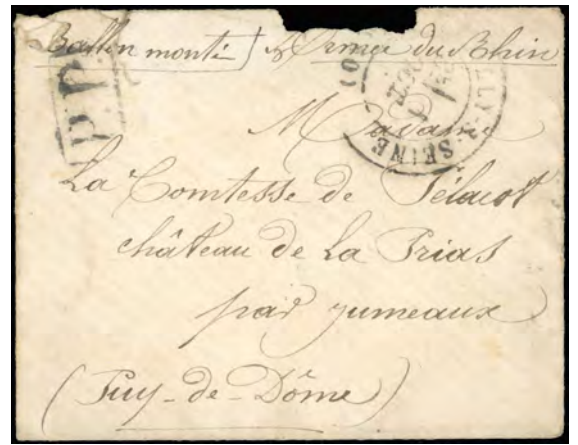 Ballon monté Armée du Rhin
P.P.
LLY-S-SEINE
Madame
La Comtesse de Pélacot
château de La Prias
par jumeaux
(Puy-de-Dôme)